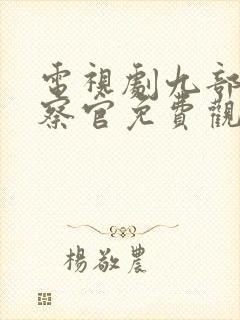 電視劇九部
察官免費觀
楊敬農